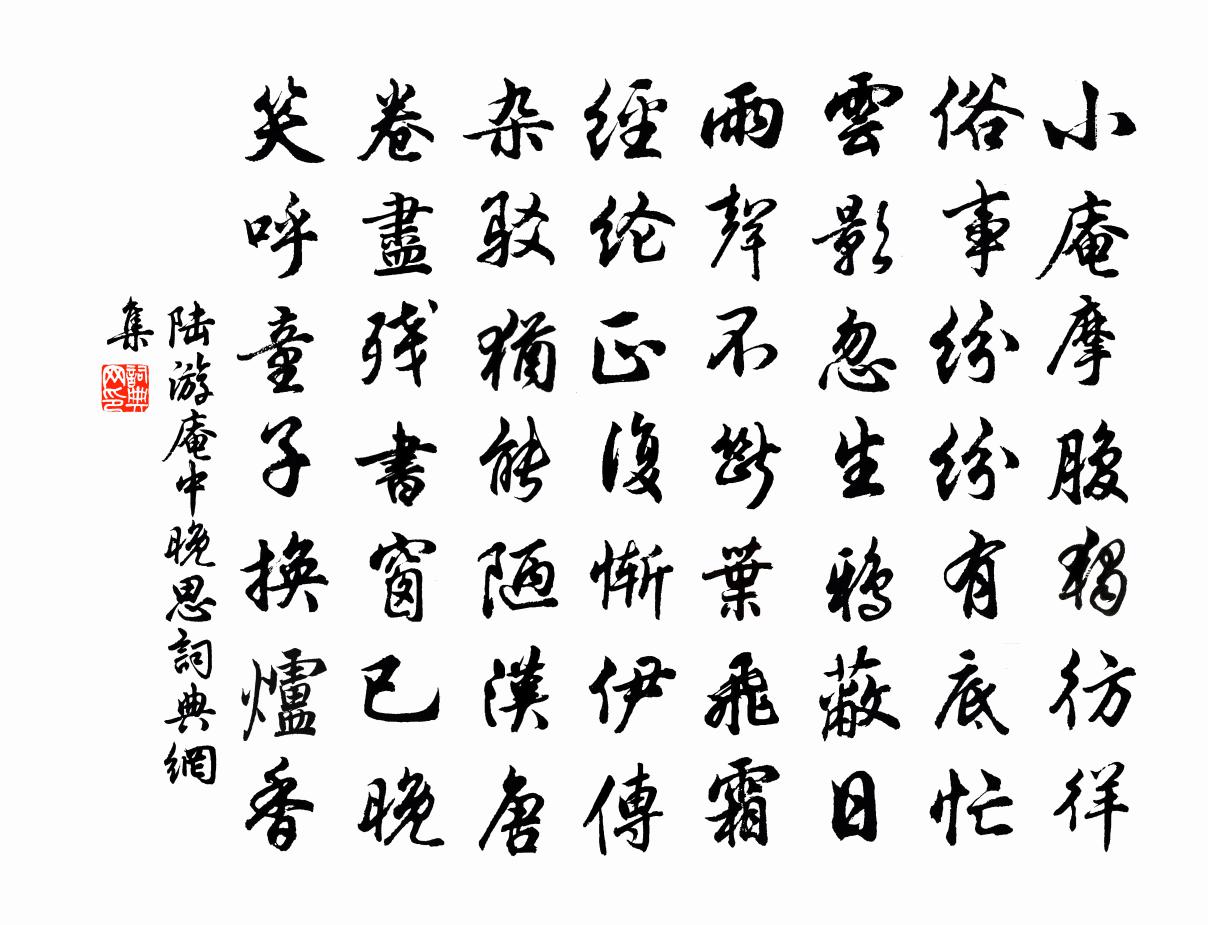 小庵摩腹獨彷徉
俗事紛紛有底忙
雲影忽生鴉蔽日
雨聲不斷葉飛霜
經纶正復慚伊傅
杂駁猶能陋漢唐
卷盡残書窗已晚
笑呼童子換爐香
陆游庵中晚思詞典網
集
詞典
网印